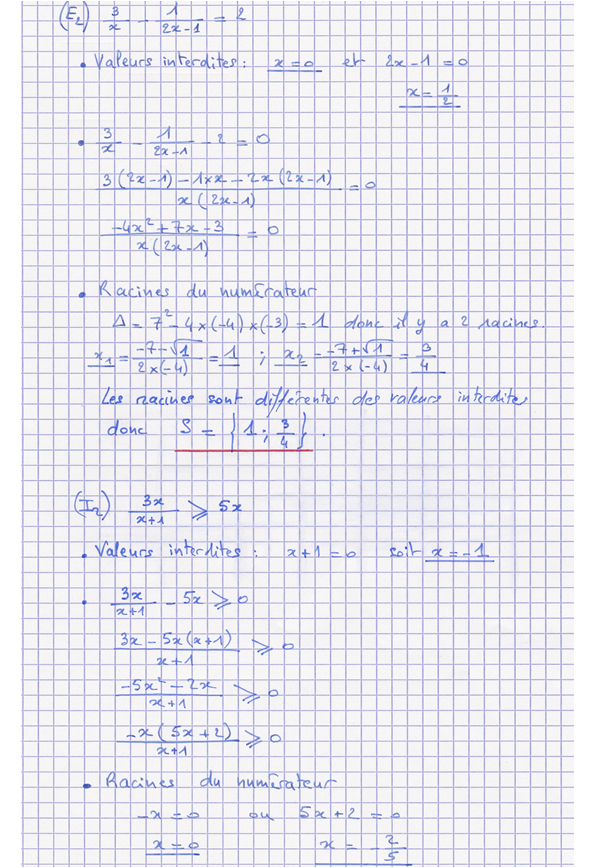 (E₂) 3/x - 1/(2x-1) = 2
• Valeurs interdites : x = 0 et 2x - 1 = 0
x = 1/2
• 3/x - 1/(2x-1) - 2 = 0
(3(2x-1) - 1×x - 2x(2x-1))/(x(2x-1)) = 0
(-4x² + 7x - 3)/(x(2x-1)) = 0
• Racines du numérateur
Δ = 7² - 4×(-4)×(-3) = 1 donc il y a 2 racines.
x₁ = (-7-√1)/(2×(-4)) = 1 ; x₂ = (-7+√1)/(2×(-4)) = 3/4
Les racines sont différentes des valeurs interdites
donc S = {1 ; 3/4}.
(I₂) 3x/(x+1) ⩾ 5x
• Valeurs interdites : x+1 = 0 soit x = -1
• 3x/(x+1) - 5x ⩾ 0
(3x - 5x(x+1))/(x+1) ⩾ 0
(-5x² - 2x)/(x+1) ⩾ 0
(-x(5x+2))/(x+1) ⩾ 0
• Racines du numérateur
-x = 0 ou 5x + 2 = 0
x = 0 x = -2/5